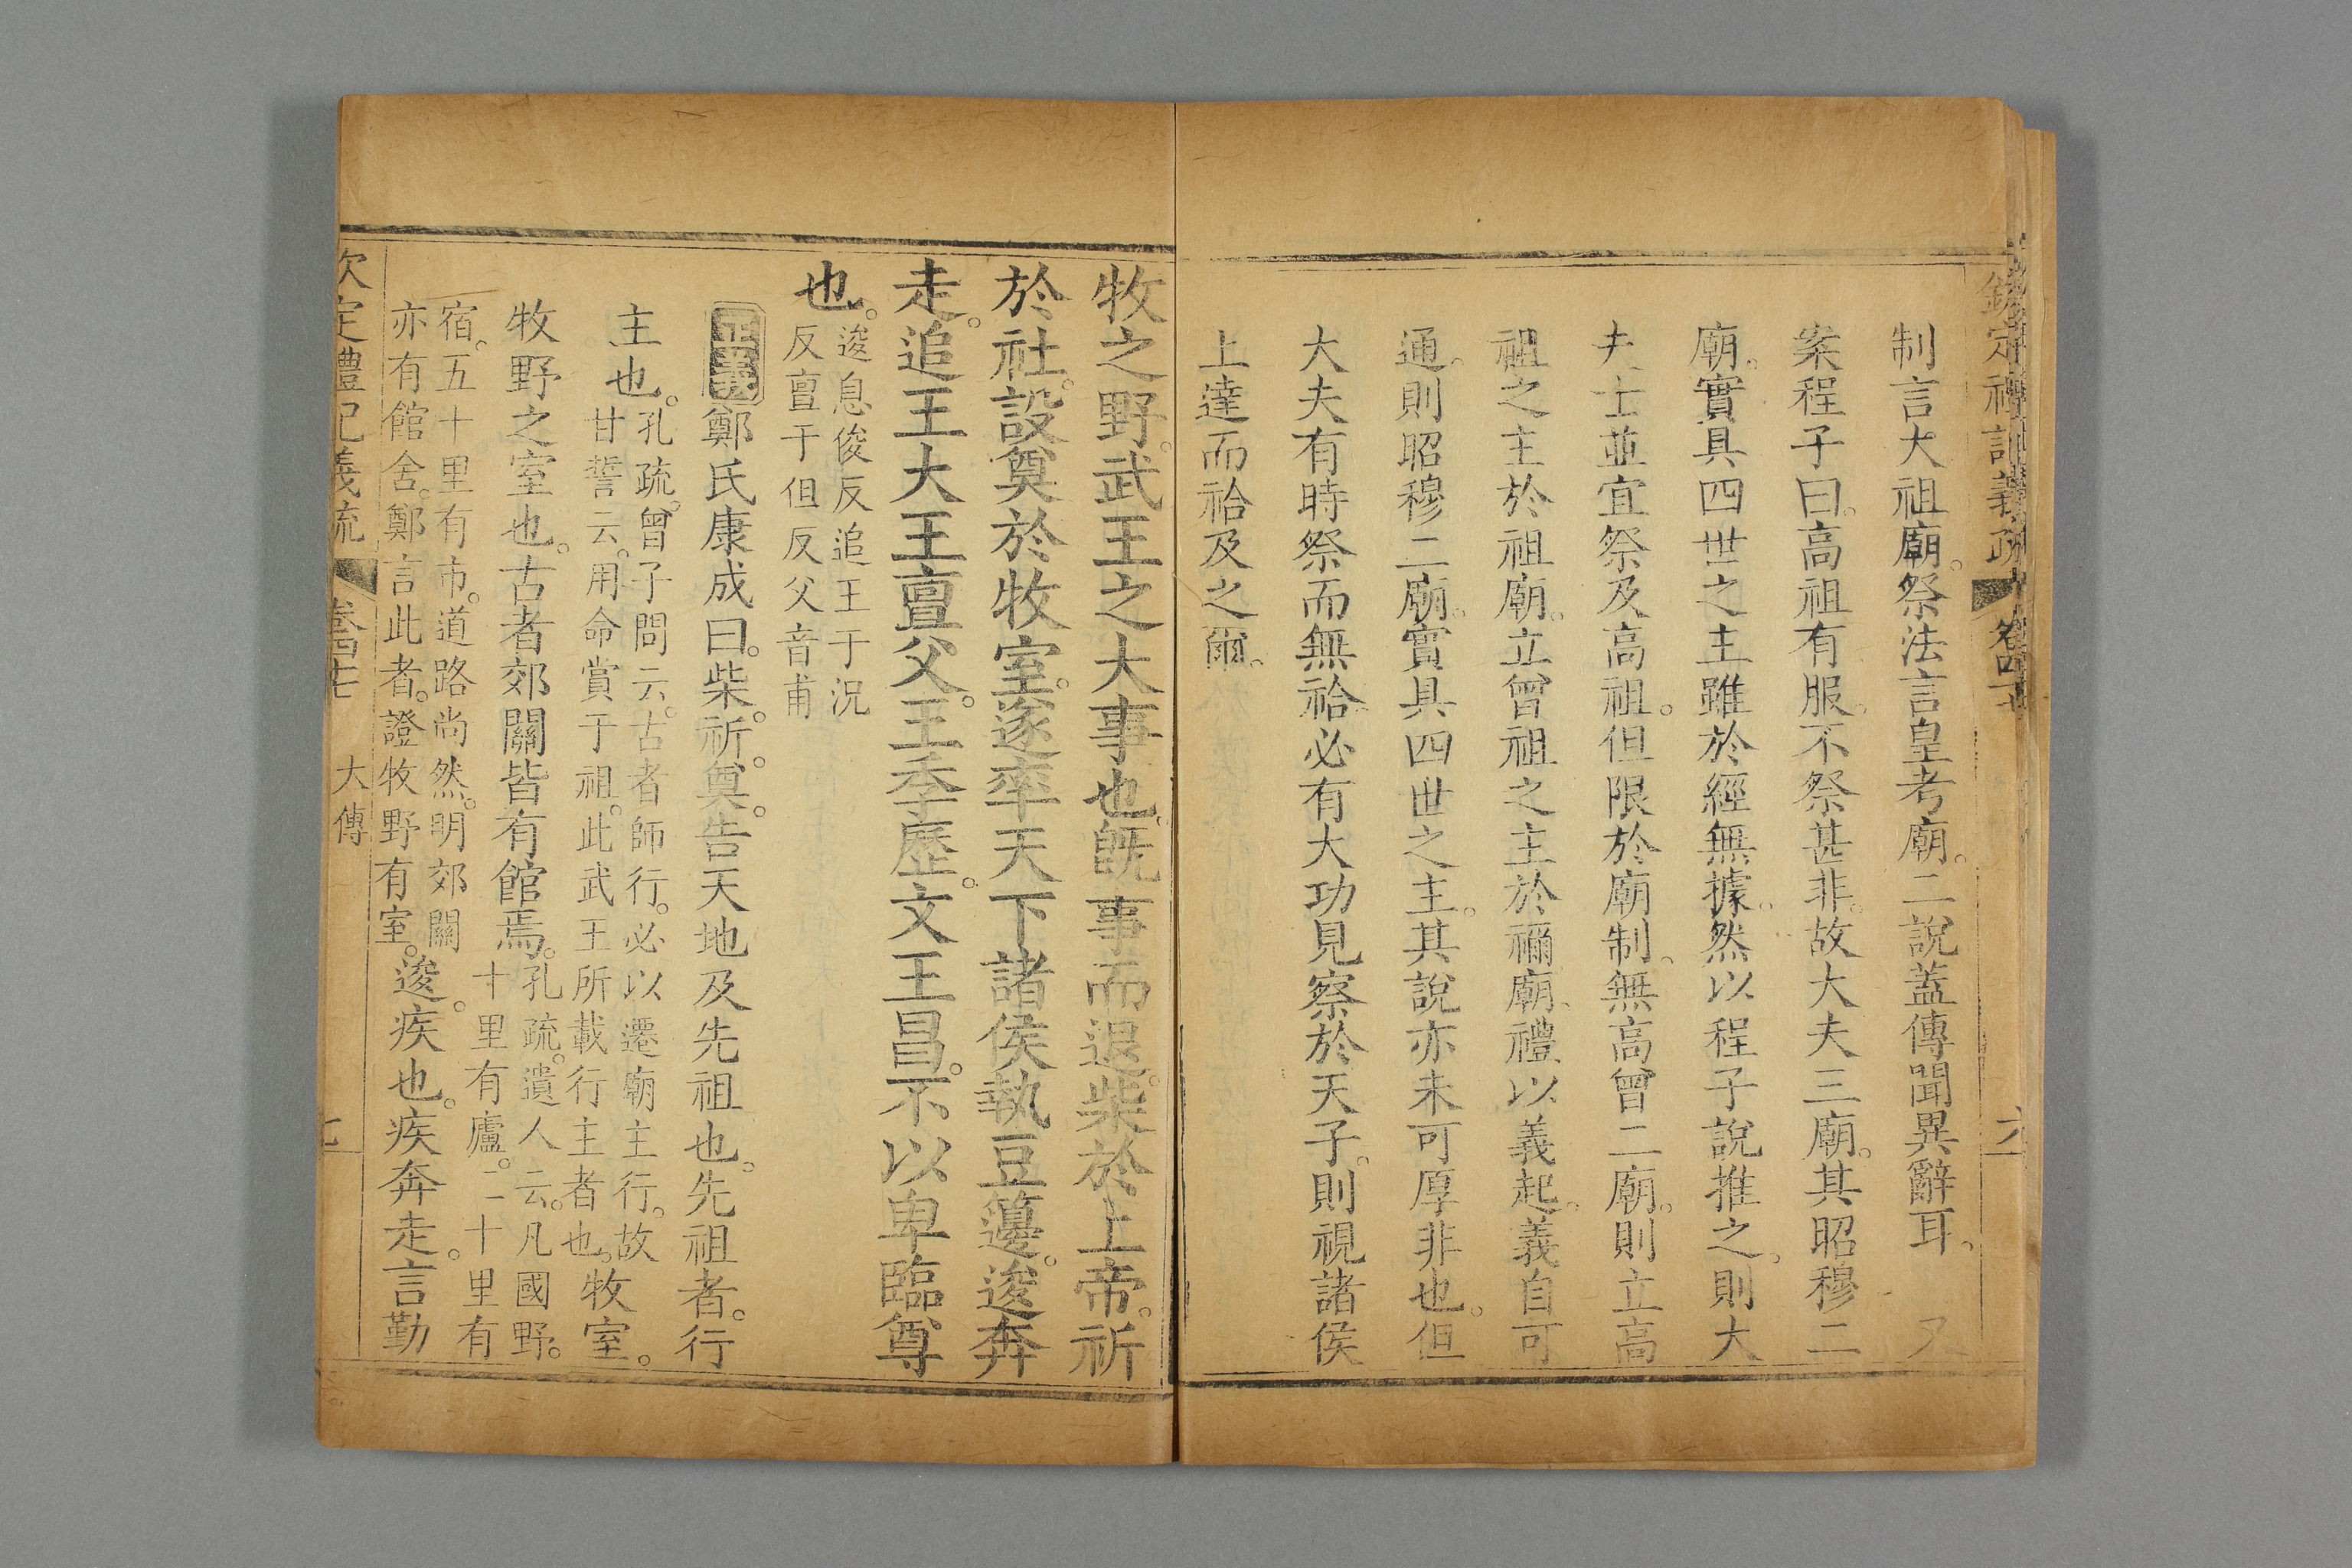 制言大祖廟。祭法言皇考廟。二說蓋傳聞異辭耳。又
案程子曰。高祖有服。不祭甚非。故大夫三廟。其昭穆二
廟。實具四世之主。雖於經無據。然以程子說推之。則大
夫士並宜祭及高祖。但限於廟制。無高曾二廟。則立高
祖之主於祖廟。立曾祖之主於禰廟。禮以義起。義自可
通。則昭穆二廟。實具四世之主。其說亦未可厚非也。但
大夫有時祭而無祫。必有大功見察於天子。則視諸侯
上達而祫及之爾。
牧之野。武王之大事也。既事而退。柴於上帝。祈
於社。設奠於牧室。遂率天下諸侯執豆籩。逡奔
走。追王大王亶父。王季歷。文王昌。不以卑臨尊
也。逡息俊反追王于況
反亶于但反父音甫
正義鄭氏康成曰。柴。祈。奠。告天地及先祖也。先祖者。行
主也。孔疏。曾子問云。古者師行。必以遷廟主行。故
甘誓云。用命賞于祖。此武王所載行主者也。牧室。
牧野之室也。古者郊關皆有館焉。孔疏。遺人云。凡國野。
十里有廬。三十里有
宿。五十里有市。道路尚然。明郊關
亦有館舍。鄭言此者。證牧野有室。逡。疾也。疾奔走。言勤
欽定禮記義疏 卷四十七 大傳 七